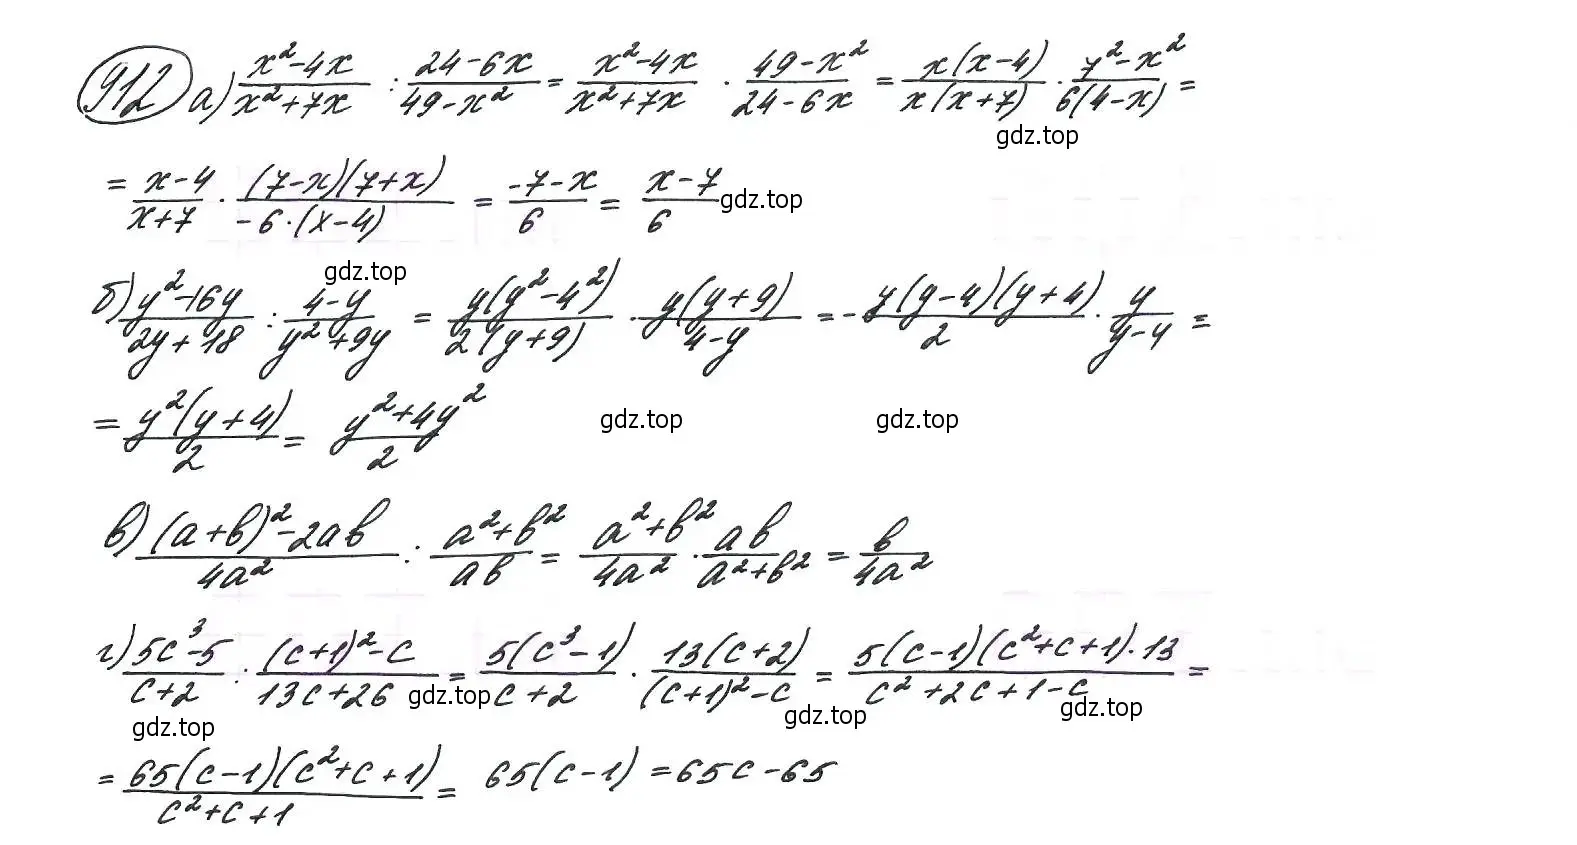 912 а) (x²-4x)/(x²+7x) : (24-6x)/(49-x²) = (x²-4x)/(x²+7x) · (49-x²)/(24-6x) = x(x-4)/x(x+7) · (7²-x²)/6(4-x) =
gdz.top
= (x-4)/(x+7) · (7-x)(7+x)/-6·(x-4) = (-7-x)/6 = (x-7)/6 gdz.top
gdz.top
б) (y²-16y)/(2y+18) : (4-y)/(y²+9y) = y(y²-4²)/2(y+9) · y(y+9)/(4-y) = - y(y-4)(y+4)/2 · y/(y-4) =
= y²(y+4)/2 = (y²+4y²)/2 gdz.top gdz.top
в) ((a+b)²-2ab)/4a² : (a²+b²)/ab = (a²+b²)/4a² · ab/(a²+b²) = b/4a²
г) (5c³-5)/(c+2) : ((c+1)²-c)/(13c+26) = 5(c³-1)/(c+2) · 13(c+2)/((c+1)²-c) = 5(c-1)(c²+c+1)·13/(c²+2c+1-c) =
gdz.top gdz.top gdz.top gdz.top
= 65(c-1)(c²+c+1)/(c²+c+1) = 65(c-1) = 65c-65